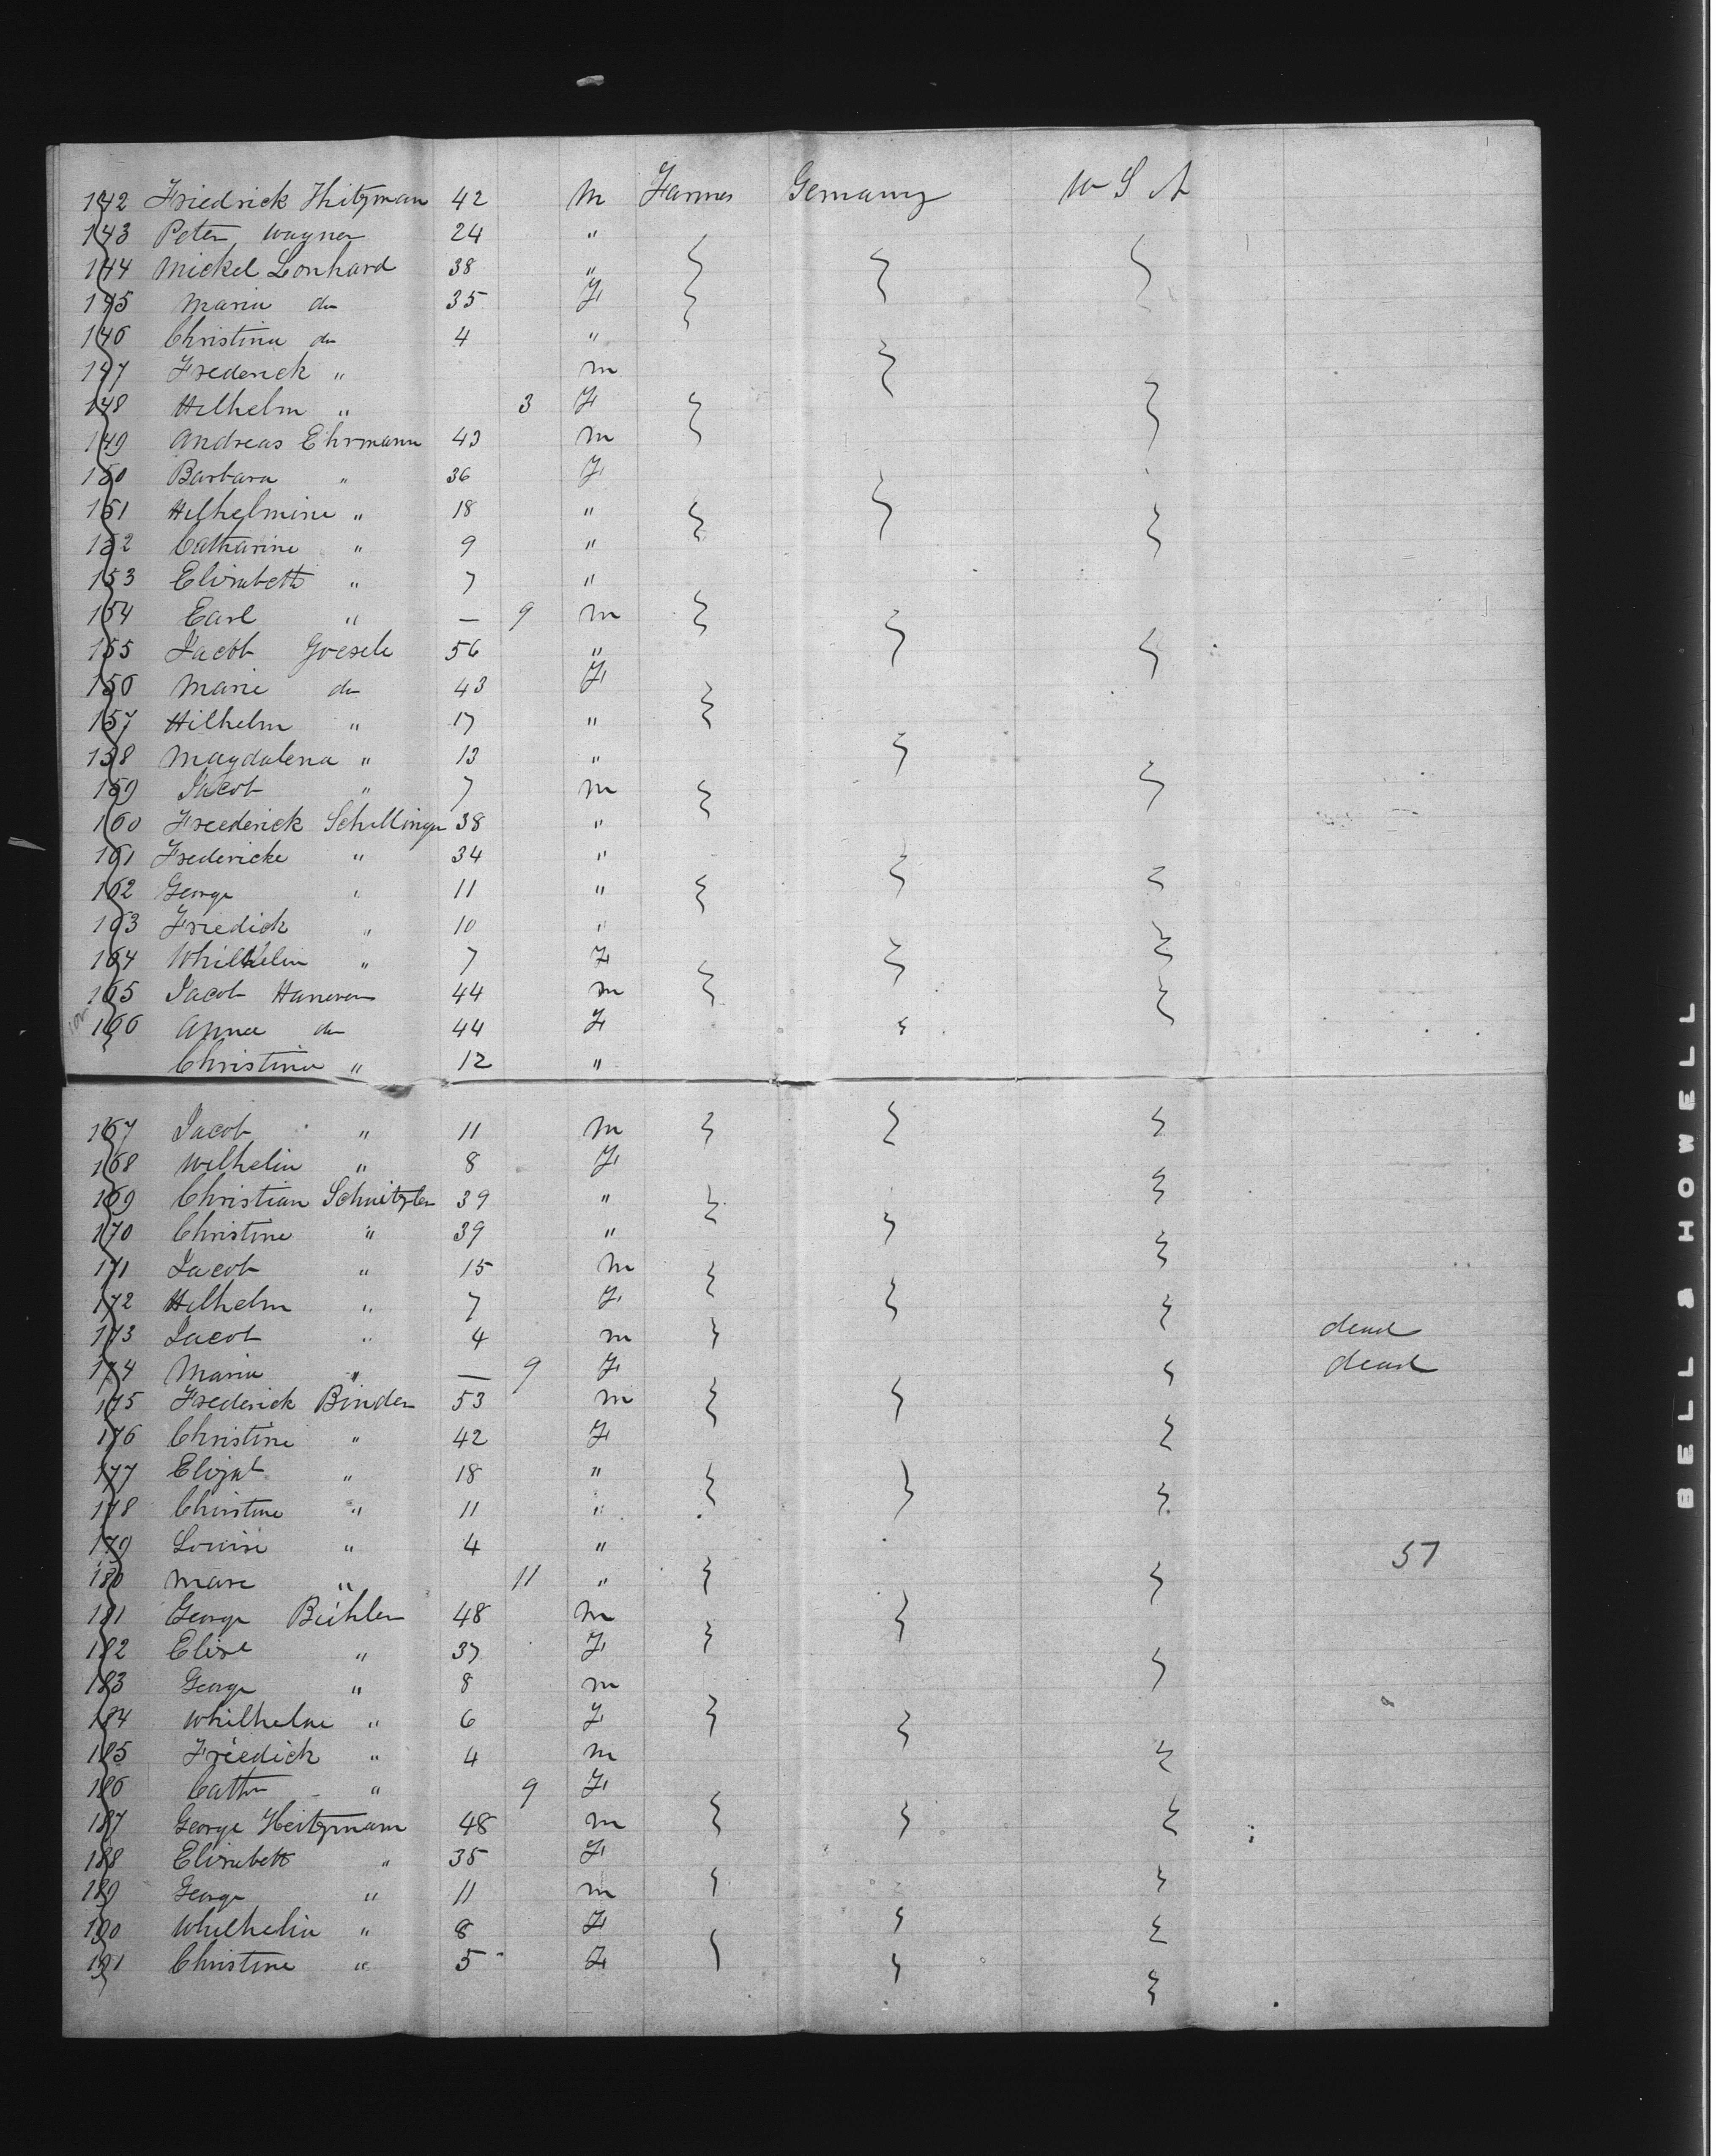 142 Friedrick Hitzman 42 m Farmer Gemany U S A
143 Peter Wagner 24 "
144 Mickel Lonhard 38 "
145 Maria do 35 F
146 Christina do 4 "
147 Frederick " m
148 Wilhelm " 3 F
149 Andreas Ehrmann 43 m
150 Barbara " 36 F
151 Wilhelmine " 18 "
152 Catharine " 9 "
153 Elisabeth " 7 "
154 Carl " — 9 m
155 Jacob Goesele 56 "
156 Marie do 43 F
157 Wilhelm " 17 "
158 Magdalena " 13 "
159 Jacob " 7 m
160 Freederick Schillinger 38 "
161 Fredericke " 34 "
162 George " 11 "
163 Friedick " 10 "
164 Whilhelm " 7 F
165 Jacob Hanover 44 m
166 Anna do 44 F
Christina " 12 "
167 Jacob " 11 m
168 Wilhelm " 8 F
169 Christian Schnitzler 39 "
170 Christine " 39 "
171 Jacob " 15 m
172 Wilhelm " 7 F
173 Jacob " 4 m dead
174 Maria " — 9 F dead
175 Frederick Binder 53 m
176 Christine " 42 F
177 Elizab " 18 "
178 Christine " 11 "
179 Louise " 4 "
57
180 Marie " 11 "
181 George Bühler 48 m
182 Elise " 37 F
183 George " 8 m
184 Whilhelm " 6 F
185 Friedick " 4 m
186 Cath " 9 F
187 George Heitzmann 48 m
188 Elisabeth " 35 F
189 George " 11 m
190 Whilhelm " 8 F
191 Christine " 5 F
BELL & HOWELL